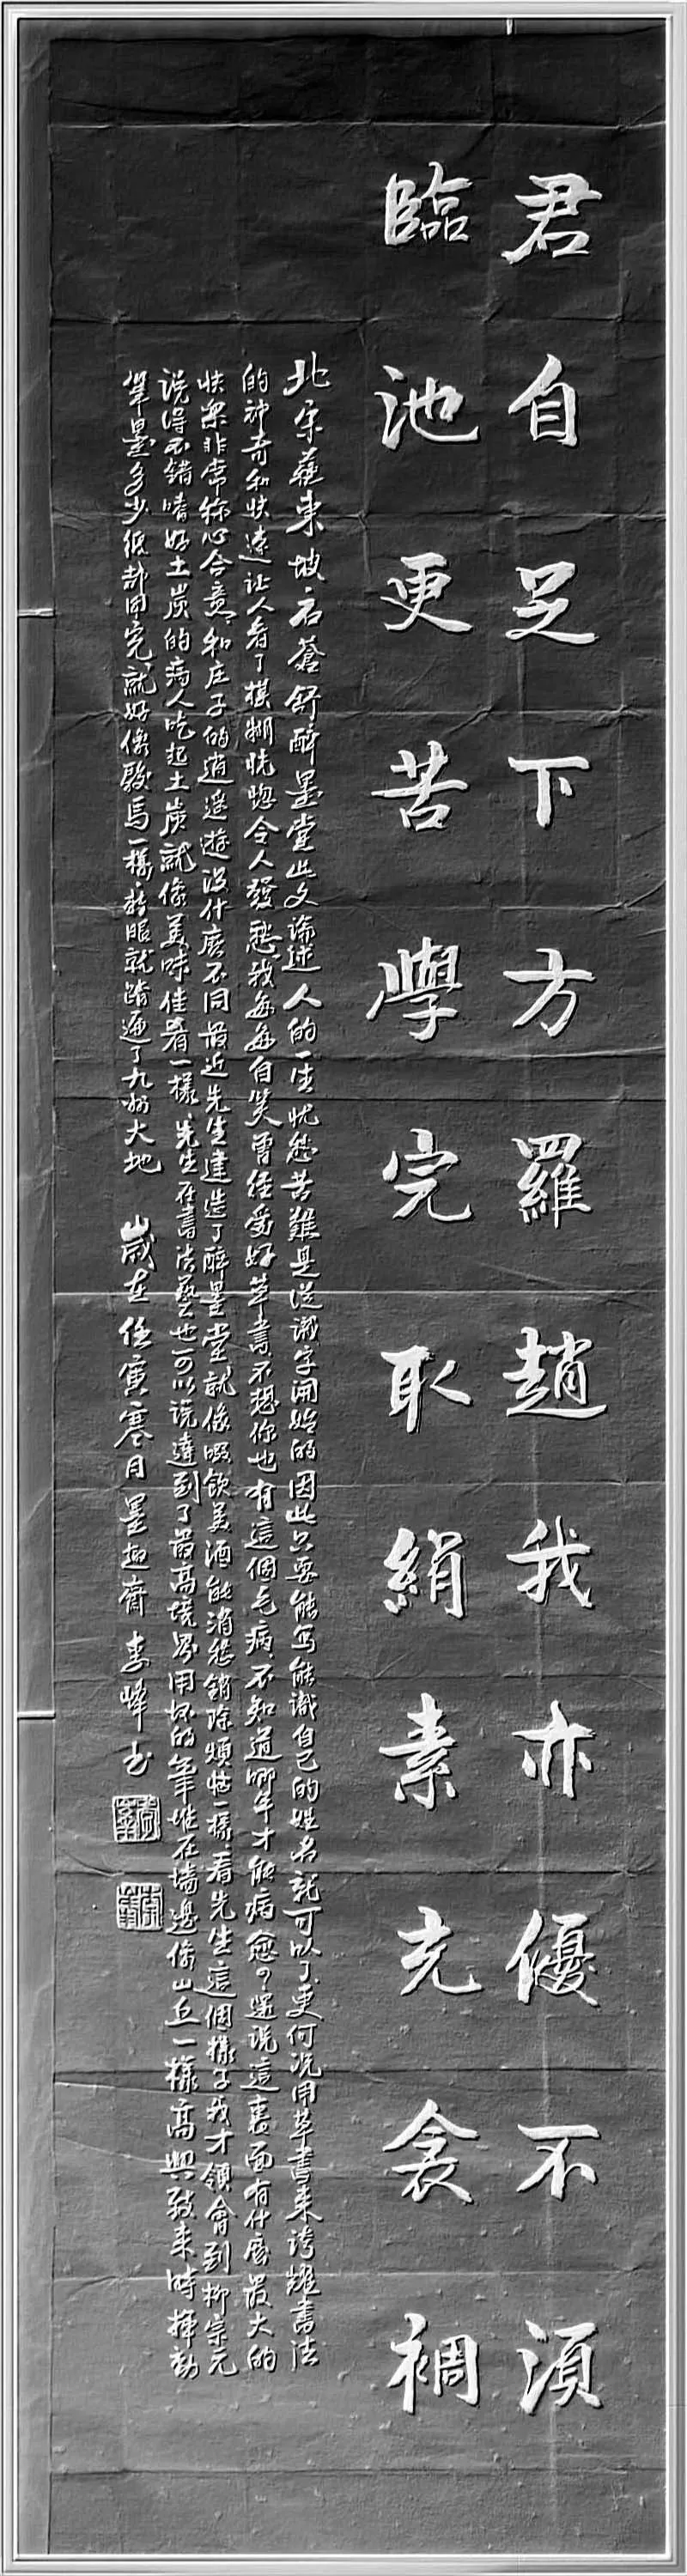 君自足下方羅趙我亦優不須
臨池更苦學完取絹素充衾裯
北宋蘇東坡石蒼舒醉墨堂此文論述人的一生忧愁苦難是從識字開始的因此只要能写能識自己的姓名就可以了更何況用草書来誇耀書法
的神奇和快速让人看了模糊恍惚令人發愁我每每自笑曾经爱好草書不想你也有這個毛病不知道哪年才能病愈還说這裏面有什麼最大的
快樂非常称心合意和庄子的逍遥遊没什麼不同最近先生建造了醉墨堂就像啜飲美酒能消愁銷除煩惱一樣看先生這個樣子我才領會到柳宗元
说得不錯嗜好土炭的病人吃起土炭就像美味佳肴一樣先生在書法藝也可以说達到了最高境界用坏的筆堆在墙邊像山丘一樣高興致来時揮動
筆墨多少纸都用完就好像駿馬一樣轉眼就踏遍了九州大地 歲在任寅寒月墨趣齋李峰书